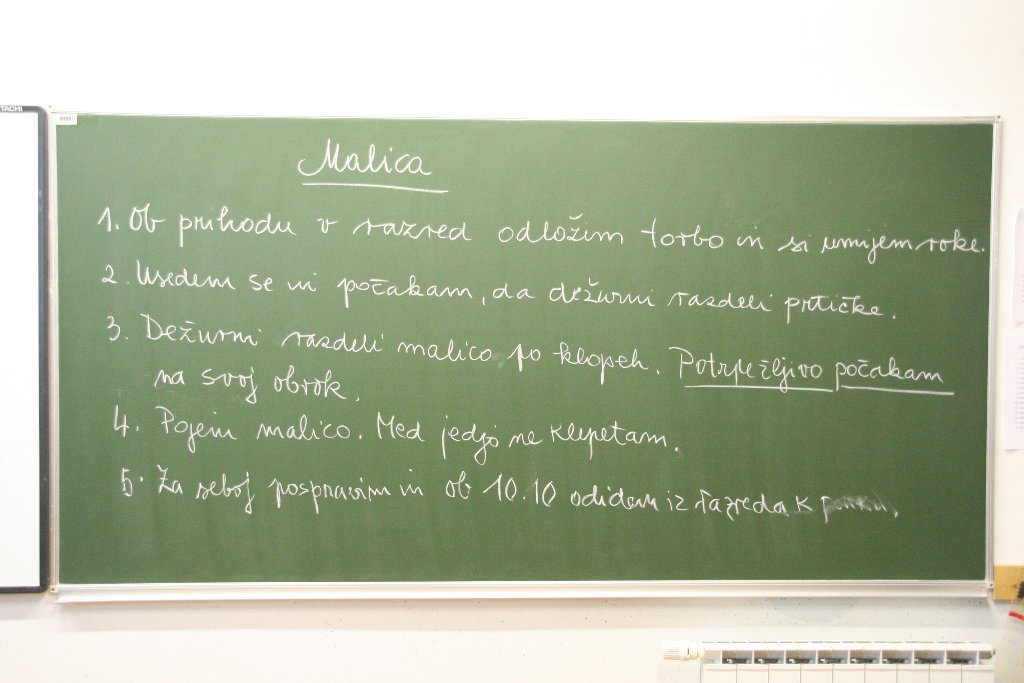 HITACHI
Malica
1. Ob prihodu v razred odložim torbo in si umijem roke.
2. Usedem se in počakam, da dežurni razdeli prtičke.
3. Dežurni razdeli malico po klopeh. Potrpežljivo počakam
na svoj obrok.
4. Pojem malico. Med jedjo ne klepetam.
5. Za seboj pospravim in ob 10.10 odidem iz razreda k